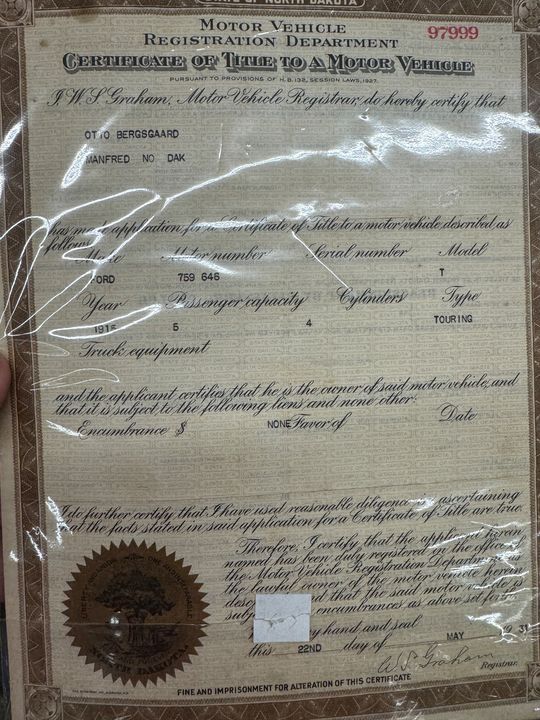 STATE OF NORTH DAKOTA
MOTOR VEHICLE
97999
REGISTRATION DEPARTMENT
CERTIFICATE OF TITLE TO A MOTOR VEHICLE
PURSUANT TO PROVISIONS OF H.B. 132, SESSION LAWS, 1927.
I, W.S. Graham, Motor Vehicle Registrar, do hereby certify that
OTTO BERGSGAARD
MANFRED NO DAK
has made application for a Certificate of Title to a motor vehicle described as
follows
Make Motor number Serial number Model
FORD 759 646 T
Year Passenger capacity Cylinders Type
5 4 TOURING
Truck equipment
and the applicant certifies that he is the owner of said motor vehicle, and
that it is subject to the following liens and none other:
Encumbrance $ NONE Favor of Date
I do further certify that I have used reasonable diligence in ascertaining
that the facts stated in said application for a Certificate of Title are true.
Therefore, I certify that the applicant herein
named has been duly registered in the office of
the Motor Vehicle Registration Department as
the lawful owner of the motor vehicle herein
and that the said motor vehicle is
encumbrances as above set forth.
my hand and seal
this 22ND day of MAY 1931
W.S. Graham
Registrar.
NORTH DAKOTA
FINE AND IMPRISONMENT FOR ALTERATION OF THIS CERTIFICATE